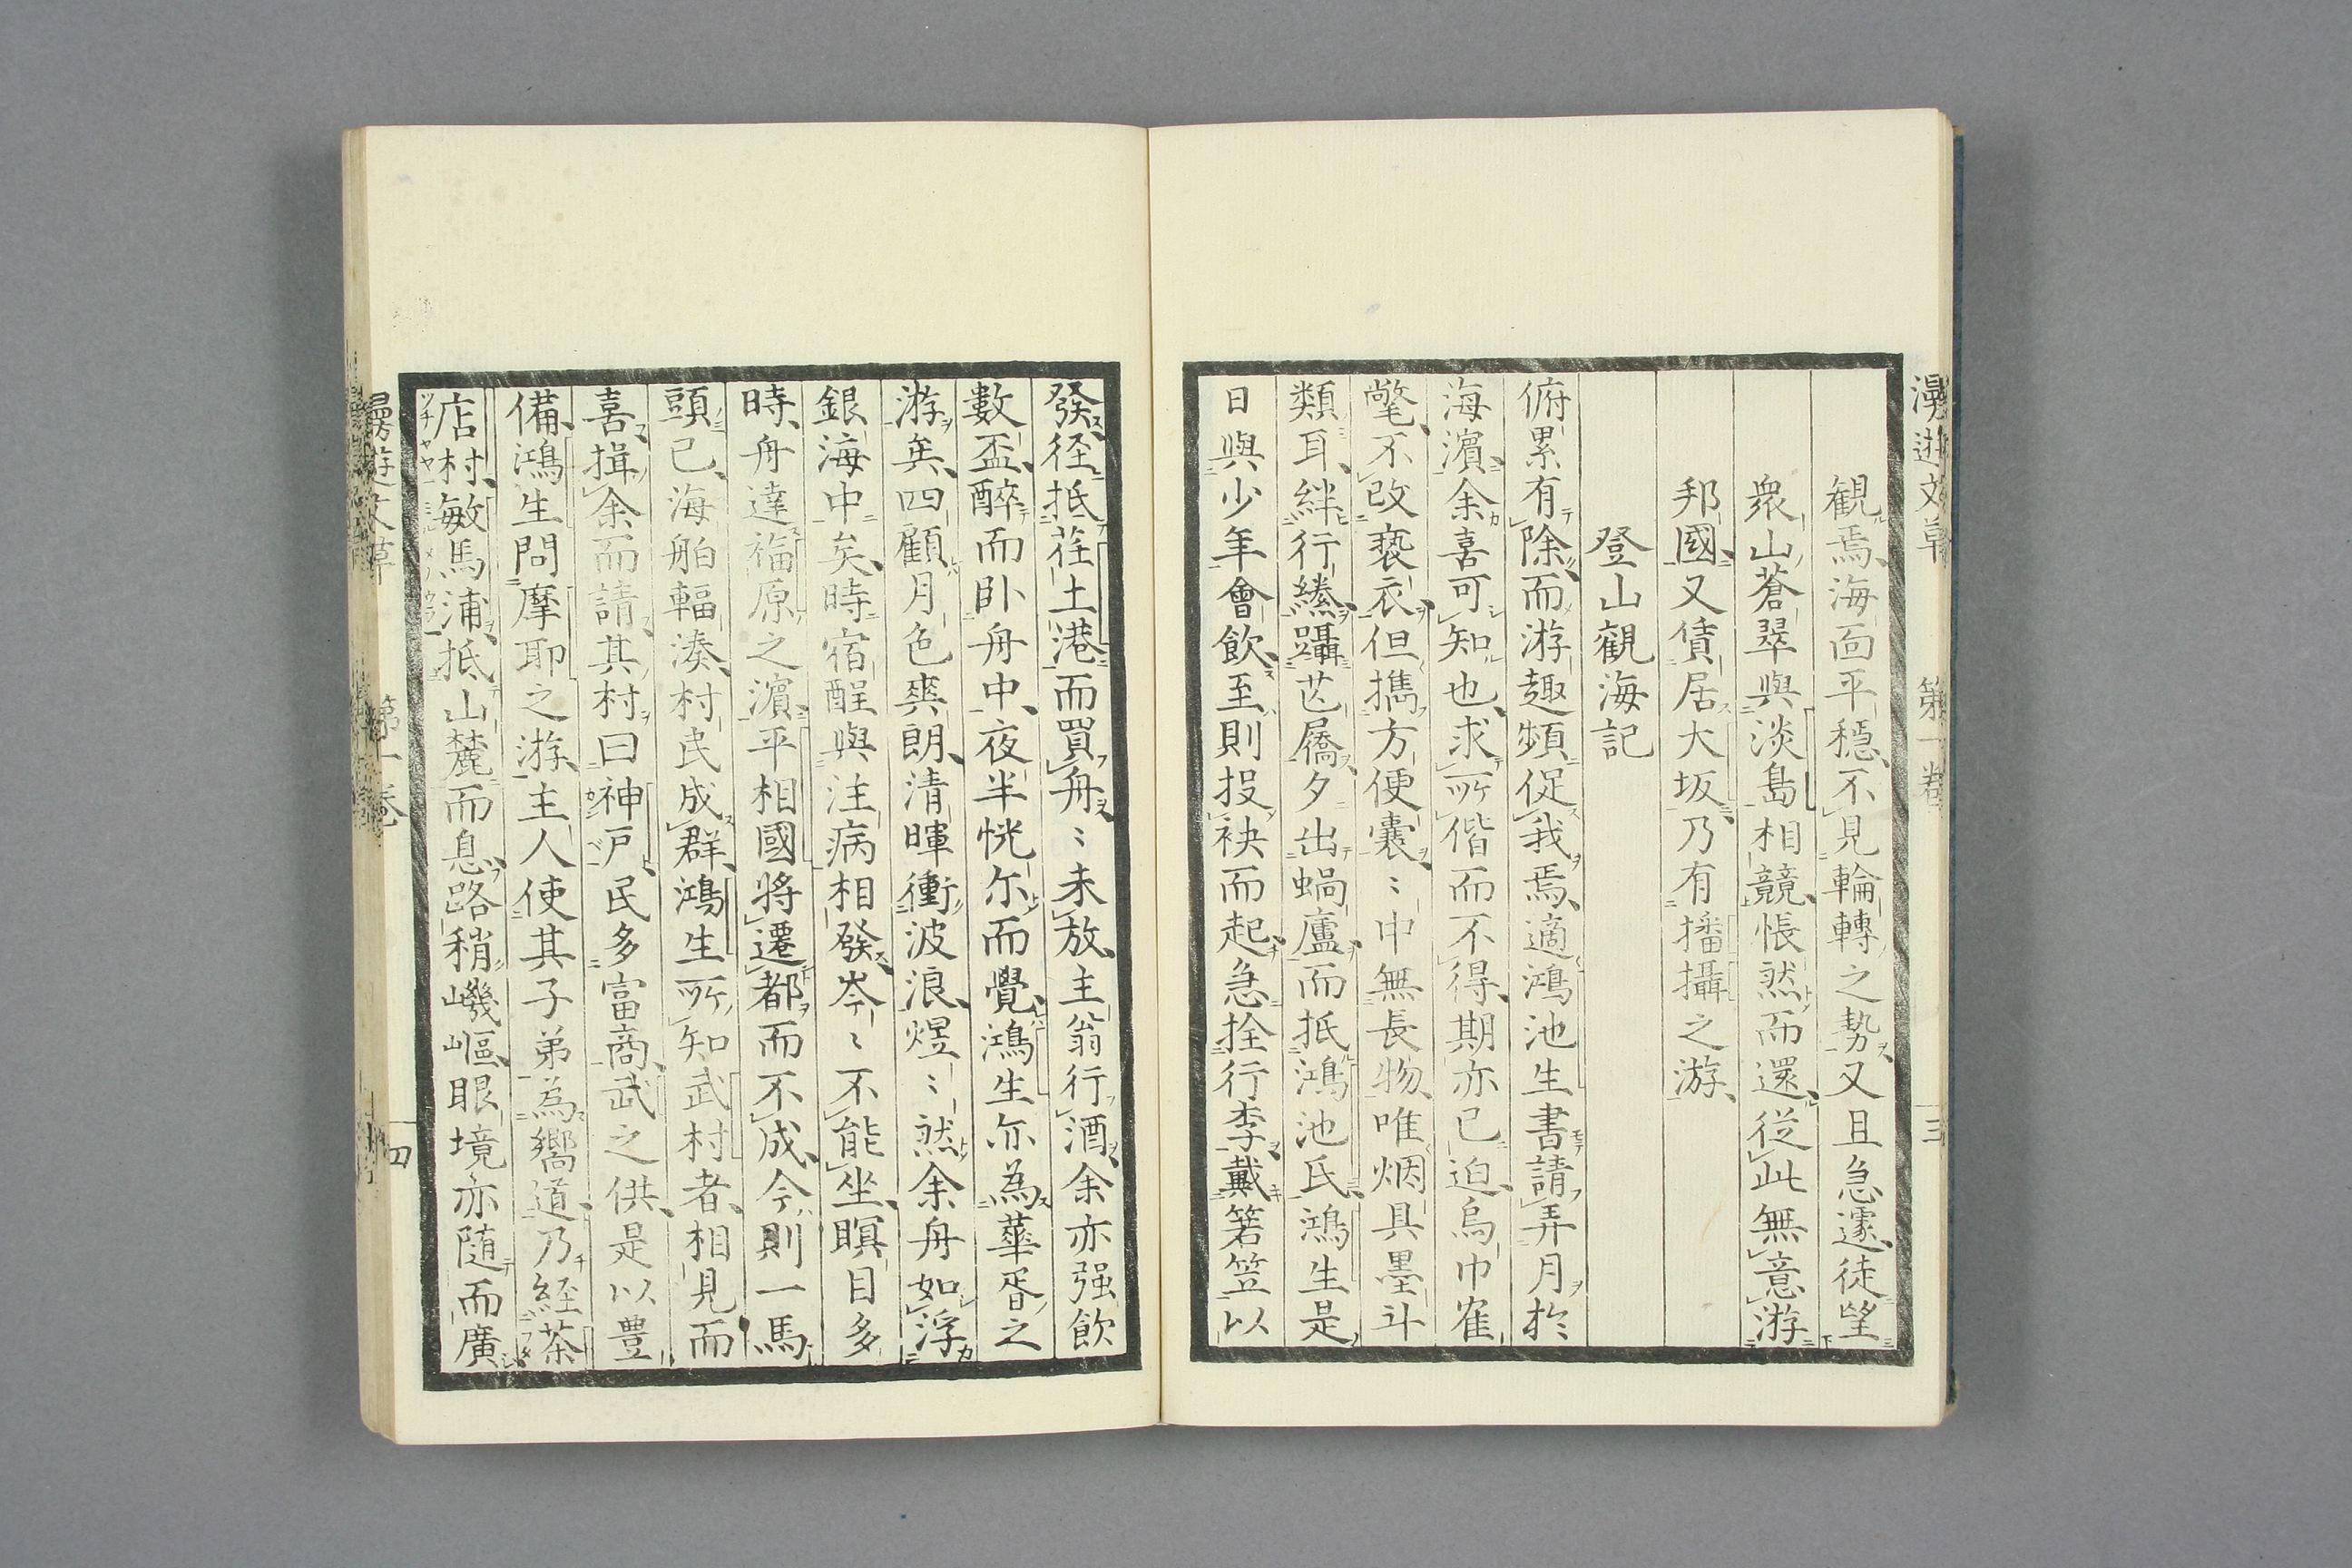 漫遊文草　第一卷　三
觀焉海面平穩不見輪轉之勢又且急遽徒望
衆山蒼翠與淡島相競悵然而還從此無意游
邦國又賃居大坂乃有播攝之游
登山觀海記
俯累有除而游趣頻促我焉適鴻池生書請弄月於
海濱余喜可知也求所偕而不得期亦已迫烏巾寉
氅不改褻衣但擕方便囊〻中無長物唯烟具墨斗
類耳絆行縢躡芒屩夕出蝸廬而抵鴻池氏鴻生是
日與少年會飮至則投袂而起急拴行李戴箬笠以
發径抵荏土港而買舟〻未放主翁行酒余亦强飮
數盃醉而卧舟中夜半恍尓而覺鴻生亦為華胥之
游矣四顧月色爽朗清暉衝波浪煜〻然余舟如浮
銀海中矣時宿酲與注病相發岑〻不能坐瞑目多
時舟達福原之濵平相國將遷都而不成今則一馬
頭已海舶輻湊村民成群鴻生所知武村者相見而
喜揖余而請其村曰神戸民多富商武之供是以豊
備鴻生問摩耶之游主人使其子弟為嚮道乃経茶
店村敏馬浦抵山麓而息路稍嶬嶇眼境亦随而廣
漫游文草　第一卷　四